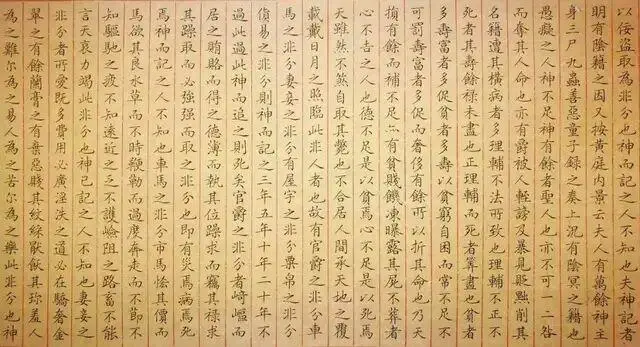 以佞盜取為非分也神而記之人不知也夫神記者
明有陰籍之因又按黃庭內景云夫人有萬餘神主
身三尸九蟲善惡童子錄之奏上況有陰冥之籍也
愚癡之人神不足神有餘者聖人也亦不可一二咎
而奪其人命也亦有爵被人輕謗及暴見貶黜削其
名籍遭其橫病者多理輔不法所致也理輔不正不
死者其壽餘祿未盡也正理輔而死者算盡也貧者
多壽富者多促貧者多壽以貧窮自困而常不足不
可罰壽富者多促而奢侈有餘所以折其命也乃天
損有餘而補不足亦有貧賤饑凍曝露其屍不葬者
心不吉之人也德不足是以貧焉心不足是以死焉
天雖然不煞自取其斃也不合居人間承天地之覆
載戴日月之照臨此非人者也故有官爵之非分車
馬之非分妻妾之非分有屋宇之非分粟帛之非分
貨易之非分則神而記之三年五年十年二十年不
過此過此神而追之則死矣官爵之非分者崎嶇而
居之賄賂而得之德薄而執其位躁求而竊其祿求
其躁取而必強強而取之非分也即有災焉病焉死
焉神而記之人不知也車馬之非分市馬恡其價而
馬欲其良水草而不時鞭勒而過度奔走而不節不
知驅馳之疲不知遠近之乏不護嶮阻之路畜不能
言天哀力竭此非分也神已記之人不知也妻妾之
非分者所愛既多費用必廣淫泆之道必在驕奢金
翠之有餘蘭膏之有棄惡賤其紋綵猒飫其珍羞人
為之難尔為之易人為之苦尔為之樂此非分也神